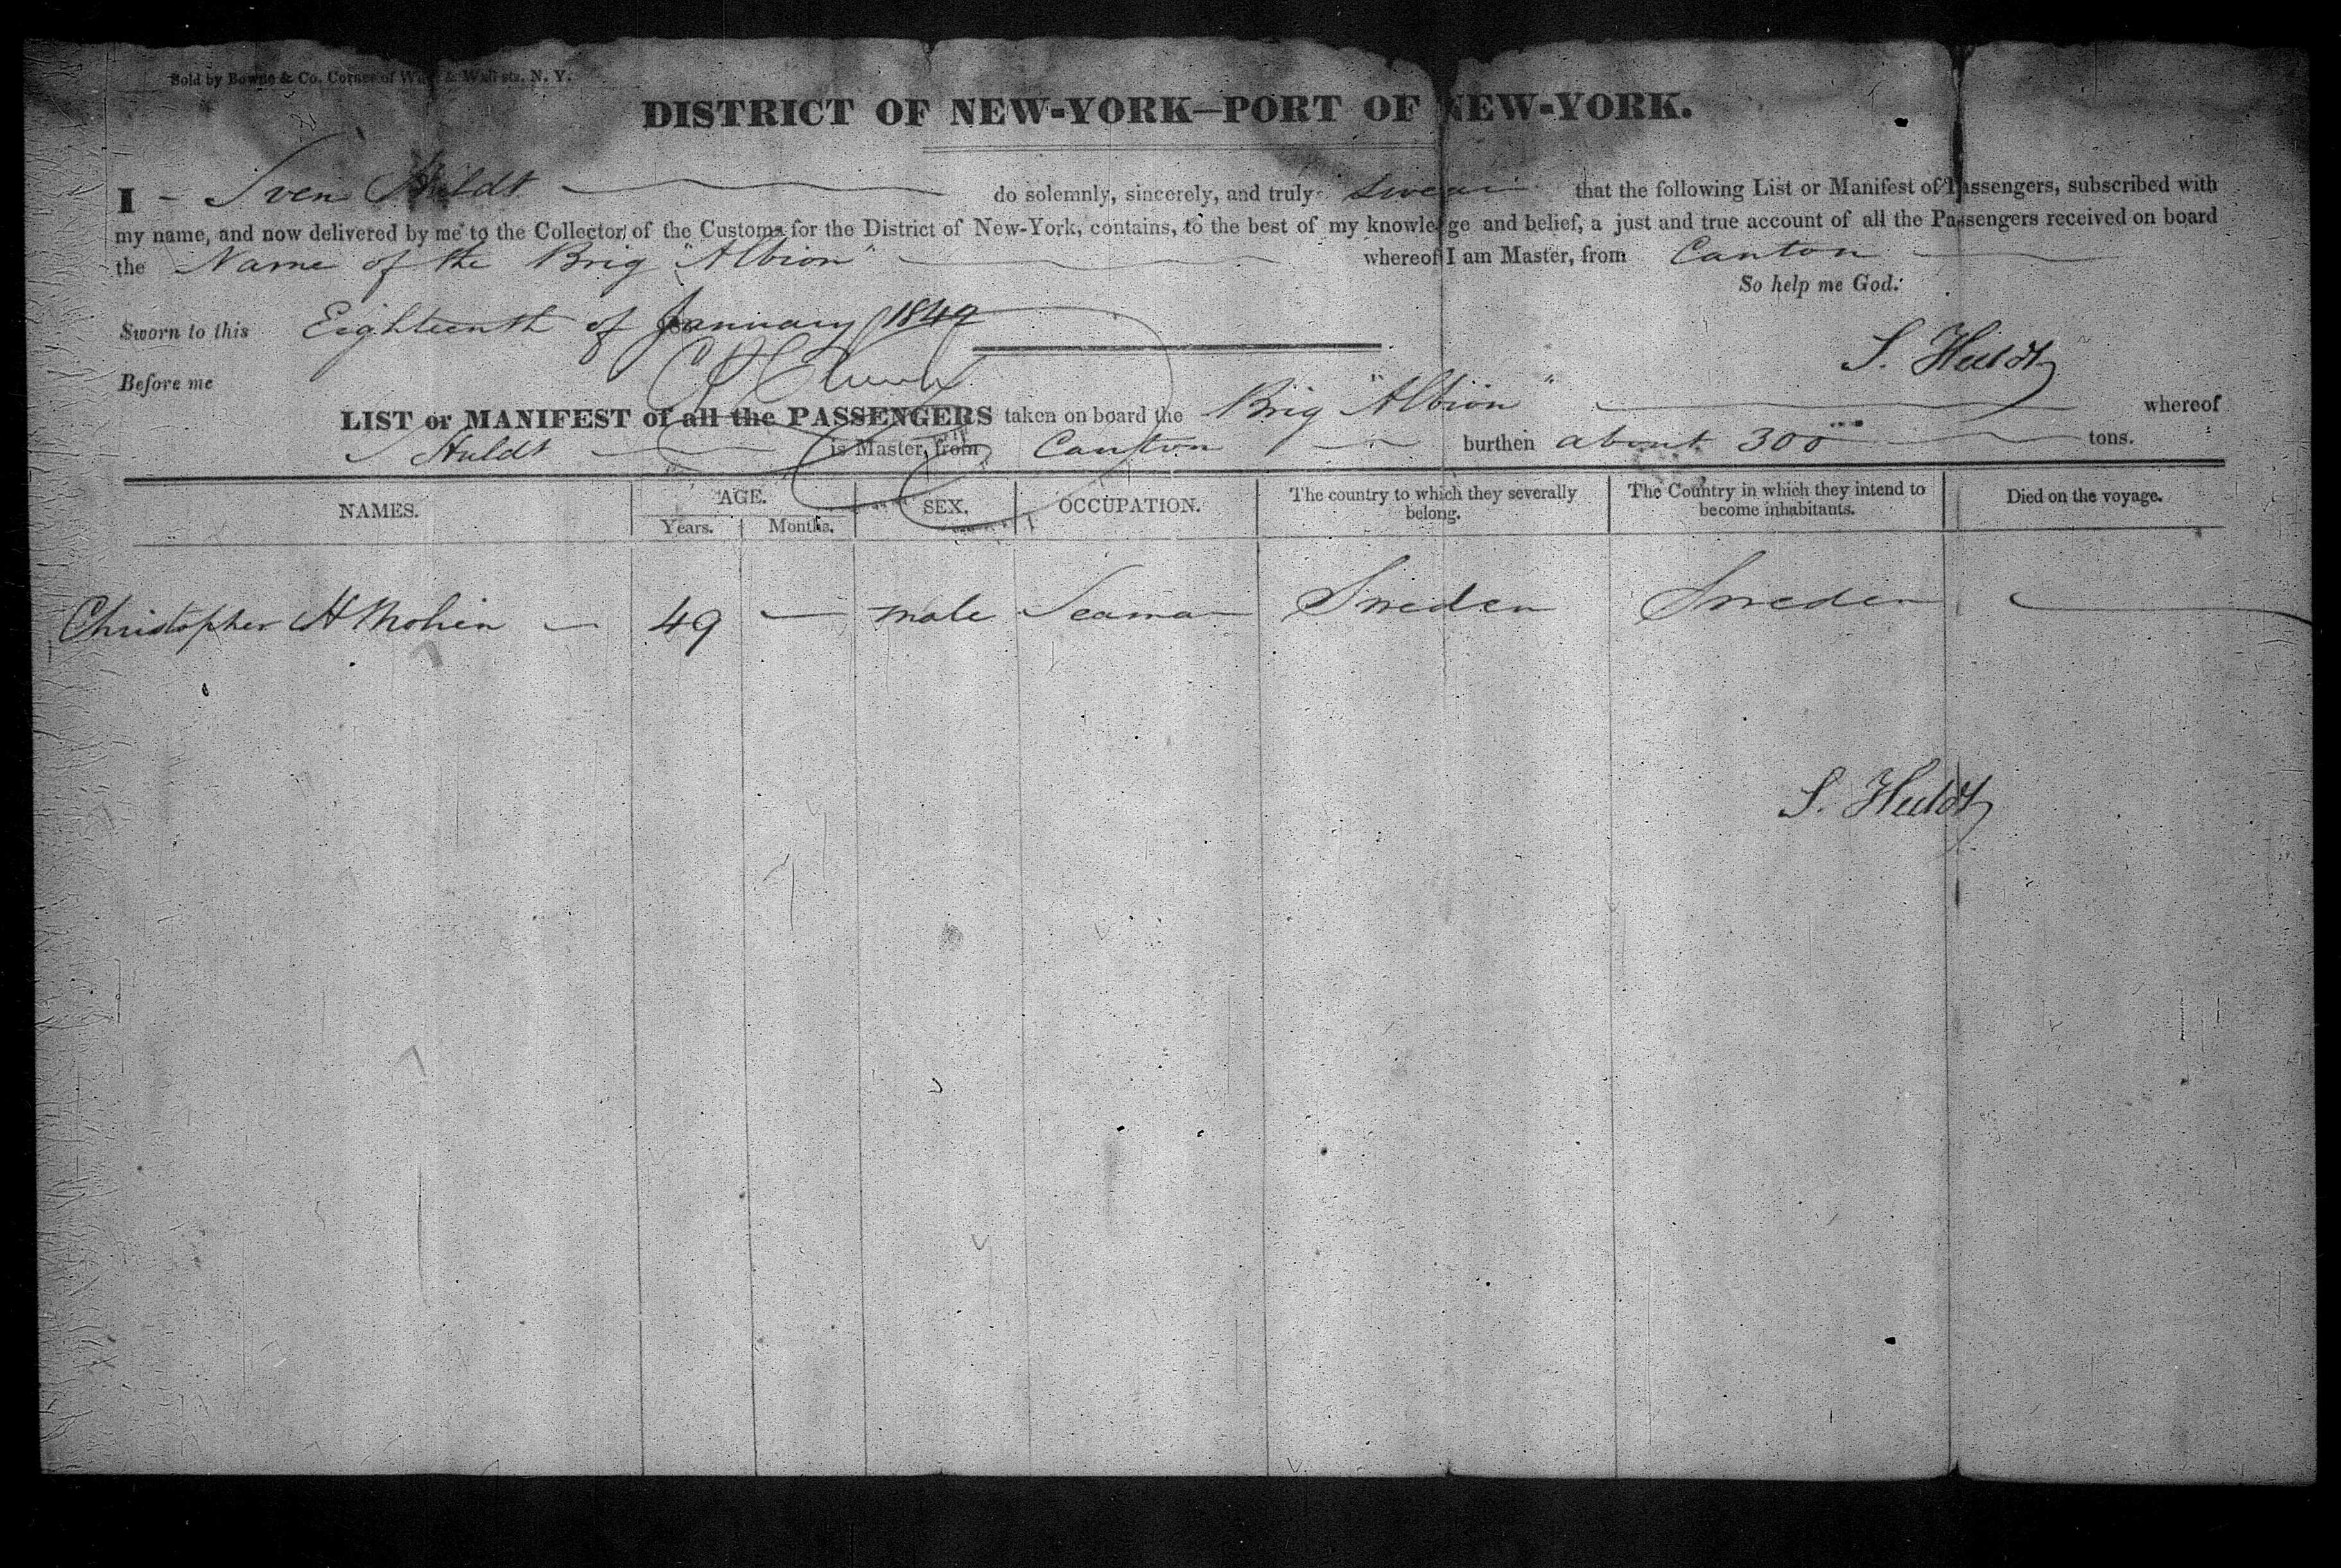 Sold by Bowne & Co. Corner of & Wall sts. N. Y.
DISTRICT OF NEW-YORK—PORT OF NEW-YORK.
I - Sven Huldt do solemnly, sincerely, and truly swear that the following List or Manifest of Passengers, subscribed with
my name, and now delivered by me to the Collector of the Customs for the District of New-York, contains, to the best of my knowledge and belief, a just and true account of all the Passengers received on board
the Name of the Brig "Albion" whereof I am Master, from Canton
So help me God.
Sworn to this Eighteenth of January 1849
S. Huldt
Before me
LIST or MANIFEST of all the PASSENGERS taken on board the Brig "Albion" whereof
S Huldt is Master, from Canton burthen about 300 tons.
NAMES. AGE. Years. Months. SEX. OCCUPATION. The country to which they severally belong. The Country in which they intend to become inhabitants. Died on the voyage.
Christopher H — 49 — male Seaman Sweden Sweden —
S. Huldt